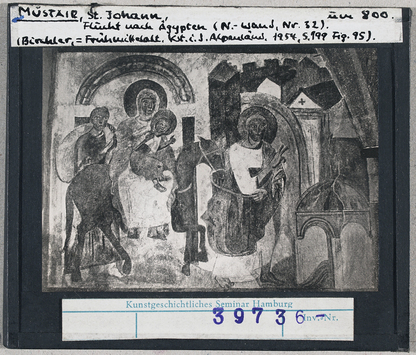 MÜSTAIR, St. Johann, um 800.
Flucht nach Ägypten (N.-Wand, Nr. 32).
(Birchler, = Frühmittelalt. Kst. i. d. Alpenländ., 1954, S. 199 Fig. 95).
Kunstgeschichtliches Seminar Hamburg
39736- Inv.-Nr.